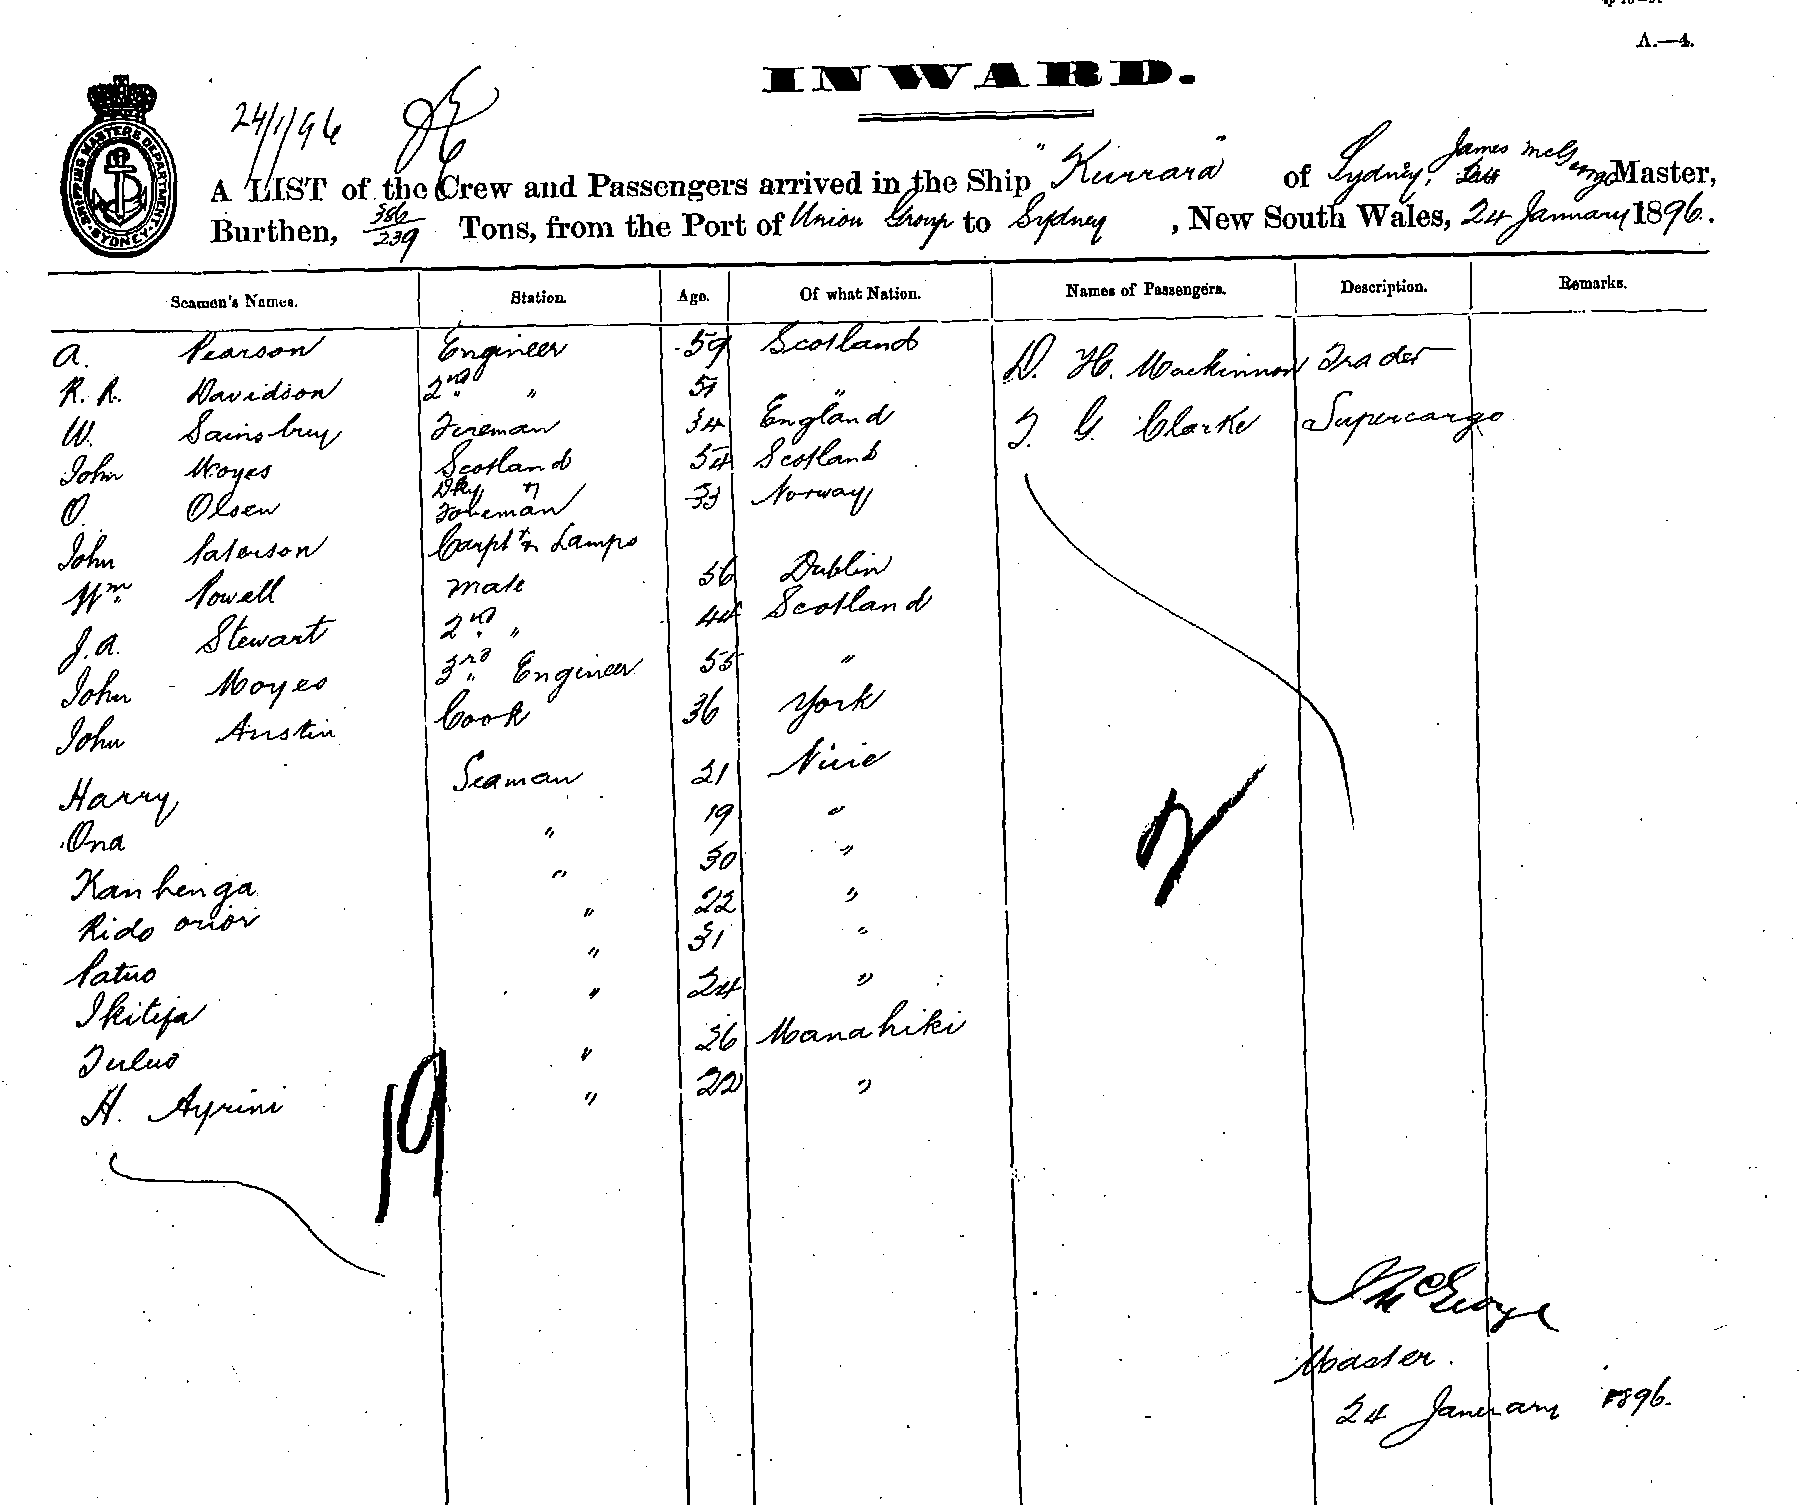 A.—4.
INWARD.
24/1/96
SHIPPING MASTERS DEPARTMENT SYDNEY
A LIST of the Crew and Passengers arrived in the Ship "Kurrara" of Sydney, James McGeorge Master,
Burthen, 386/239 Tons, from the Port of Union Group to Sydney, New South Wales, 24 January 1896.
Seamen's Names. Station. Age. Of what Nation. Names of Passengers. Description. Remarks.
A. Pearson Engineer 59 Scotland D. H. Mackinnon Trader
R. R. Davidson 2nd " 51 "
W. Sainsbury Fireman 34 England T. G. Clarke Supercargo
John Moyes Scotland 54 Scotland
O. Olsen Dky " Foreman 33 Norway
John Paterson Carptr & Lamps
Wm Powell Mate 56 Dublin
J. A. Stewart 2nd " 44 Scotland
John Moyes 3rd Engineer 55 "
John Austin Cook 36 York
Harry Seaman 21 Niue
Ona " 19 "
Kanhenga " 30 "
Rido " 22 "
Patuo " 31 "
" 24 "
Tuluo " 26 Manahiki
H. Ayrini " 22 "
19
2
J McGeorge
Master.
24 January 1896.